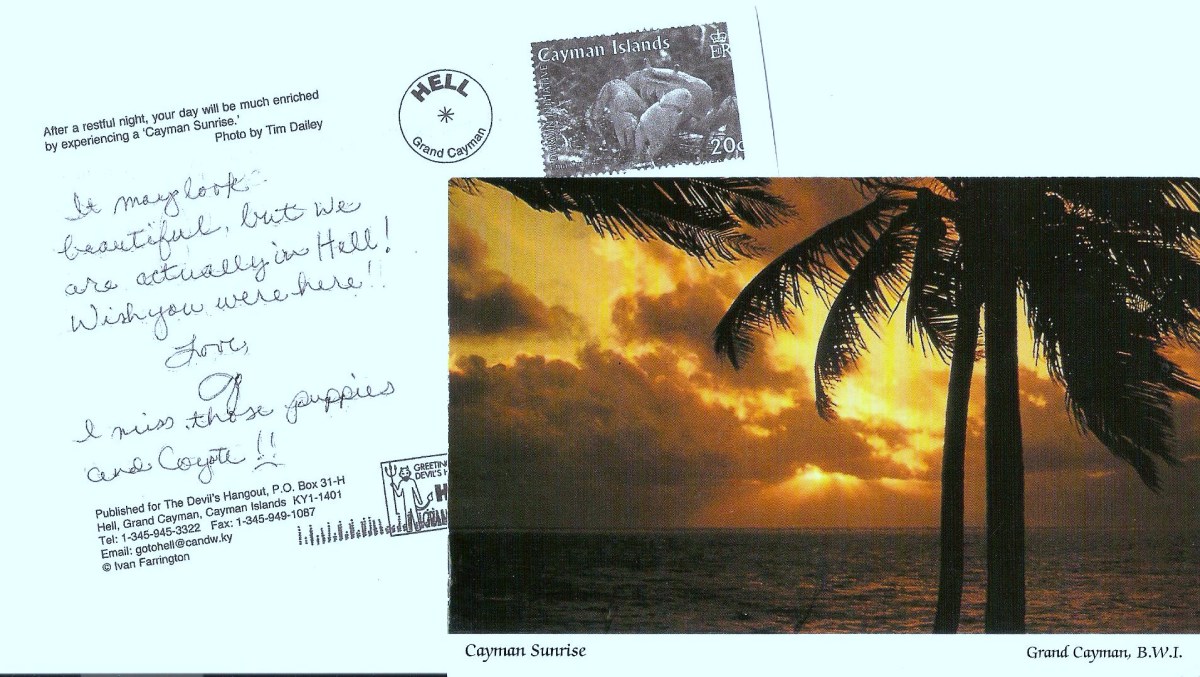 After a restful night, your day will be much enriched
by experiencing a 'Cayman Sunrise.'
Photo by Tim Dailey
HELL
Grand Cayman
Cayman Islands
ER
20c
It may look
beautiful, but we
are actually in Hell!
Wish you were here!!
Love,
I miss those puppies
and Coyote!!
Published for The Devil's Hangout, P.O. Box 31-H
Hell, Grand Cayman, Cayman Islands KY1-1401
Tel: 1-345-945-3322 Fax: 1-345-949-1087
Email: gotohell@candw.ky
© Ivan Farrington
GREETIN
DEVIL'S H
H
Cayman Sunrise
Grand Cayman, B.W.I.